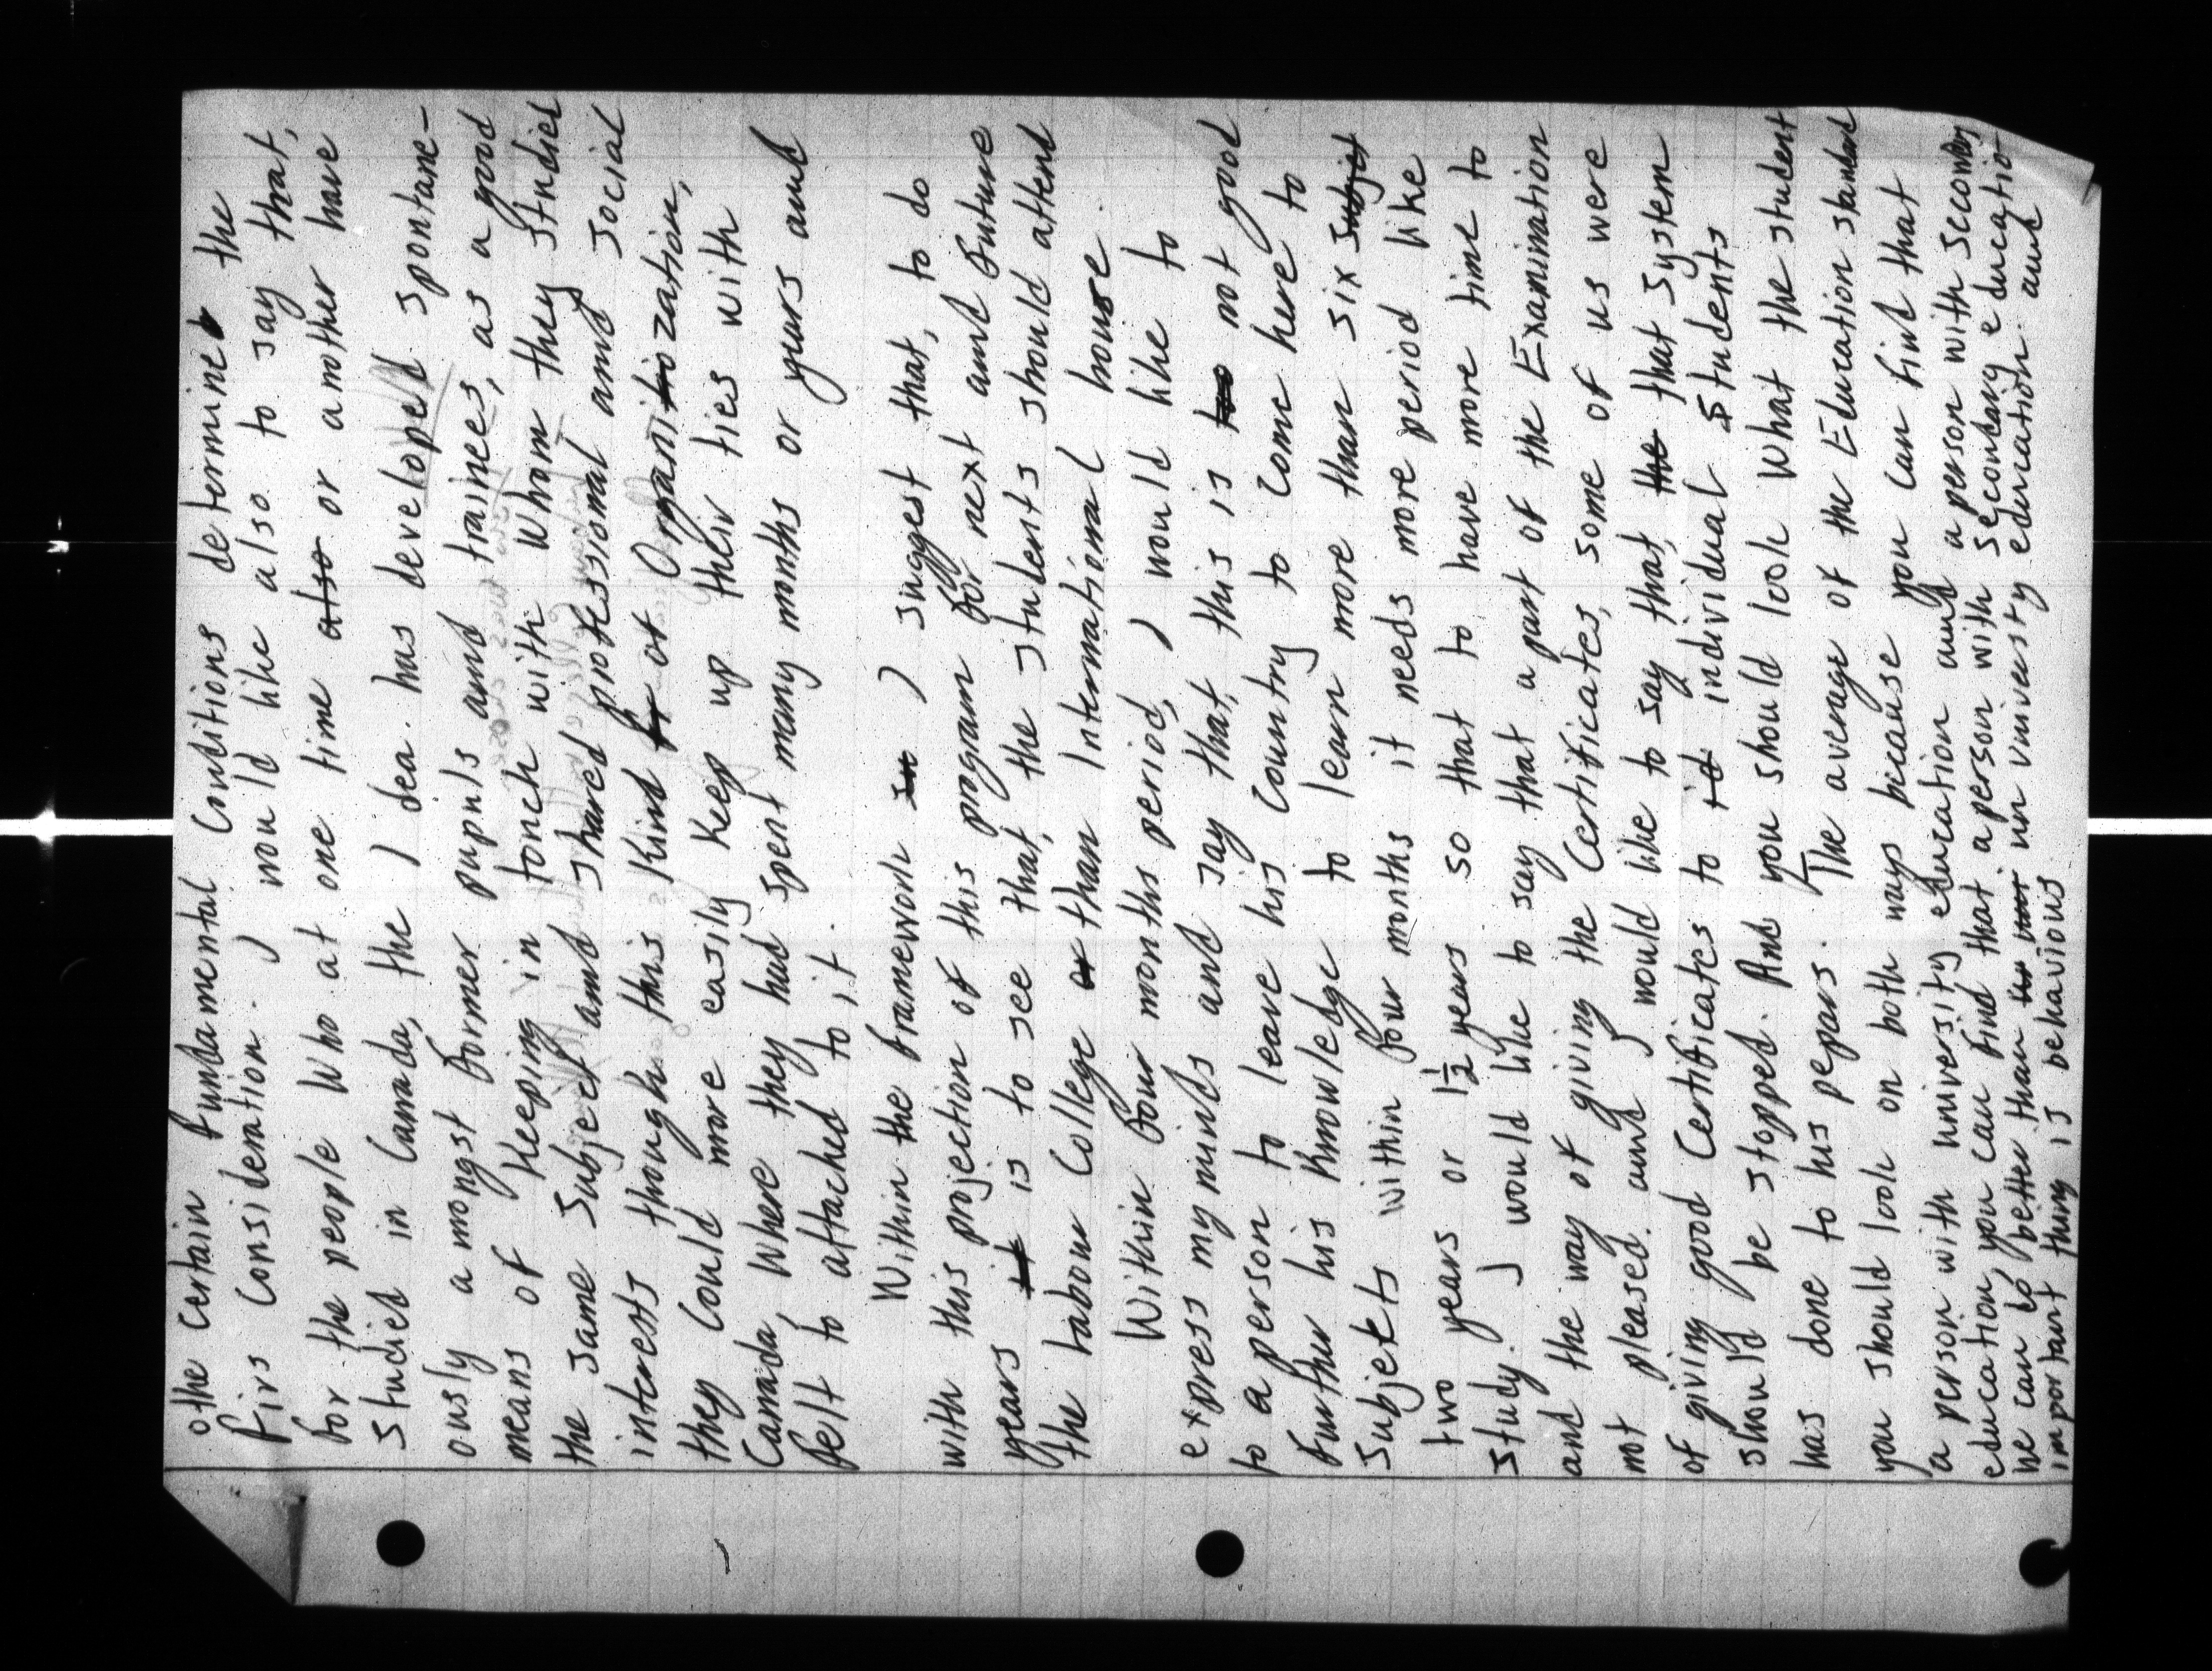 othe certain fundamental Conditions determine the
firs Consideration. I would like also to say that,
for the people Who at one time also or another have
studied in Canada, the I dea. has developed spontane-
ously a mongst former pupils and trainees, as a good
means of Keeping in touch with whom they studied
the same Subject and shared professional and social
interests though this Kind of Organization,
they Could more easily Keep up their ties with
Canada Where they had spent many months or years and
felt to attached to it.
Within the framework I suggest that, to do
with this projection of this program for next and future
years it is to see that, the students should attend
the labour College or than International house.
Within four months period, I would like to
express my minds and say that, this is not good
to a person to leave his Country to Come here to
further his Knowledge to learn more than six subject
Subjekts within four months it needs more period like
two years or 1½ years so that to have more time to
study. I would like to say that a part of the Examination
and the way of giving the Certificates, some of us were
not pleased. and I would like to say that, the that System
of giving good Certificates to id individual Students
should be stopped. And you should look What the student
has done to his pepars. The average of the Education standard
you should look on both ways because you can find that
a person with university education and a person with secondary
education, you can find that a person with secondary educatio
we can to better than un university education. and
important thing is behavious